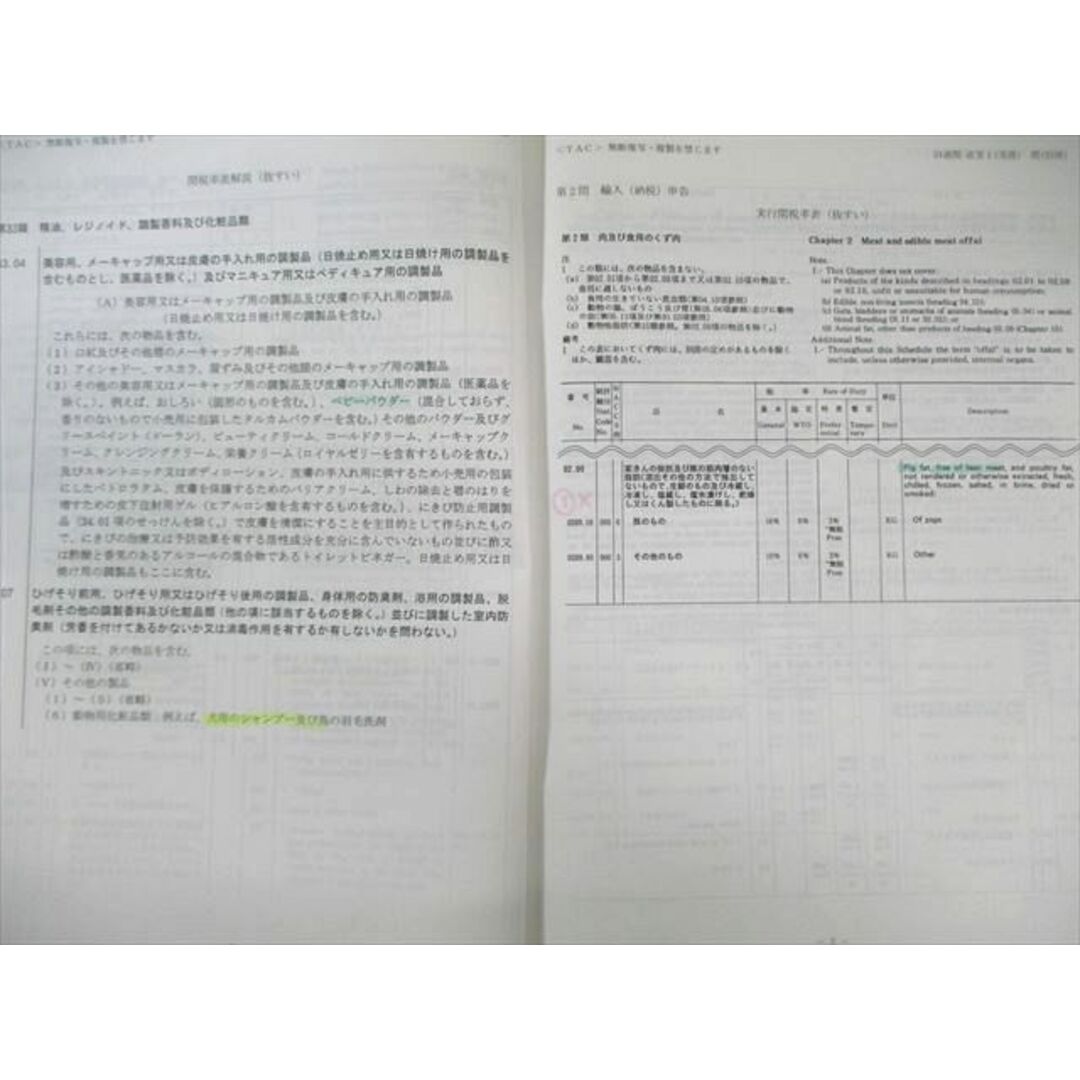 <TAC> 無断複写・複製を禁じます
関税率表解説（抜すい）
第33類 精油、レジノイド、調製香料及び化粧品類
33.04 美容用、メーキャップ用又は皮膚の手入れ用の調製品（日焼止め用又は日焼け用の調製品を
含むものとし、医薬品を除く。）及びマニキュア用又はペディキュア用の調製品
（A）美容用又はメーキャップ用の調製品及び皮膚の手入れ用の調製品
（日焼止め用又は日焼け用の調製品を含む。）
これらには、次の物品を含む。
（1）口紅及びその他唇のメーキャップ用の調製品
（2）アイシャドー、マスカラ、眉ずみ及びその他眼のメーキャップ用の調製品
（3）その他の美容用又はメーキャップ用の調製品及び皮膚の手入れ用の調製品（医薬品を
除く。）。例えば、おしろい（固形のものを含む。）、ベビーパウダー（混合しておらず、
香りのないもので小売用に包装したタルカムパウダーを含む。）その他のパウダー及びグ
リースペイント（ドーラン）、ビューティクリーム、コールドクリーム、メーキャップク
リーム、クレンジングクリーム、栄養クリーム（ロイヤルゼリーを含有するものを含む。）
及びスキントニック又はボディローション、皮膚の手入れ用に供するため小売用の包装
にしたペトロラタム、皮膚を保護するためのバリアクリーム、しわの除去と唇のはりを
増すための皮下注射用ゲル（ヒアルロン酸を含有するものを含む。）、にきび防止用調製
品（34.01 項のせっけんを除く。）で皮膚を清潔にすることを主目的として作られたもの
で、にきびの治療又は予防効果を有する活性成分を充分に含んでいないもの並びに酢又
は酢酸と香気のあるアルコールの混合物であるトイレットビネガー。日焼止め用又は日
焼け用の調製品もここに含む。
07 ひげそり前用、ひげそり用又はひげそり後用の調製品、身体用の防臭剤、浴用の調製品、脱
毛剤その他の調製香料及び化粧品類（他の項に該当するものを除く。）並びに調製した室内防
臭剤（芳香を付けてあるかないか又は消毒作用を有するか有しないかを問わない。）
この項には、次の物品を含む。
（Ⅰ）～（Ⅳ）（省略）
（Ⅴ）その他の製品
（1）～（5）（省略）
（6）動物用化粧品類：例えば、犬用のシャンプー及び鳥の羽毛洗剤
<TAC> 無断複写・複製を禁じます
第2問 輸入（納税）申告
実行関税率表（抜すい）
第2類 肉及び食用のくず肉 Chapter 2 Meat and edible meat offal
注
1 この類には、次の物品を含まない。
Note.
1.- This Chapter does not cover:
(a) Products of the kinds described in headings 02.01 to 02.08
or 02.10, unfit or unsuitable for human consumption;
(b) Edible, non-living insects (heading 04.10);
(c) Guts, bladders or stomachs of animals (heading 05.04) or animal
blood (heading 05.11 or 30.02); or
(d) Animal fat, other than products of heading 02.09 (Chapter 15).
備考
1 この表においてくず肉には、別段の定めがあるものを除く
ほか、臓器を含む。
Additional Note.
1.- Throughout this Schedule the term "offal" is to be taken to
include, unless otherwise provided, internal organs.
番号 No.
品名
税率 Rate of Duty
基本 General
協定 WTO
特恵 Preferential
暫定 Temporary
単位 Unit
Description
02.09 家きんの脂肪及び豚の筋肉層のない
脂肪（溶出その他の方法で抽出して
ないもので、生鮮のもの及び冷蔵し、
冷凍し、塩蔵し、塩水漬けし、乾燥
し又はくん製したものに限る。）
Pig fat, free of lean meat, and poultry fat,
not rendered or otherwise extracted, fresh,
chilled, frozen, salted, in brine, dried or
smoked:
0209.10 000 豚のもの 10% 6% KG Of pigs
0209.90 000 その他のもの 10% 6% KG Other